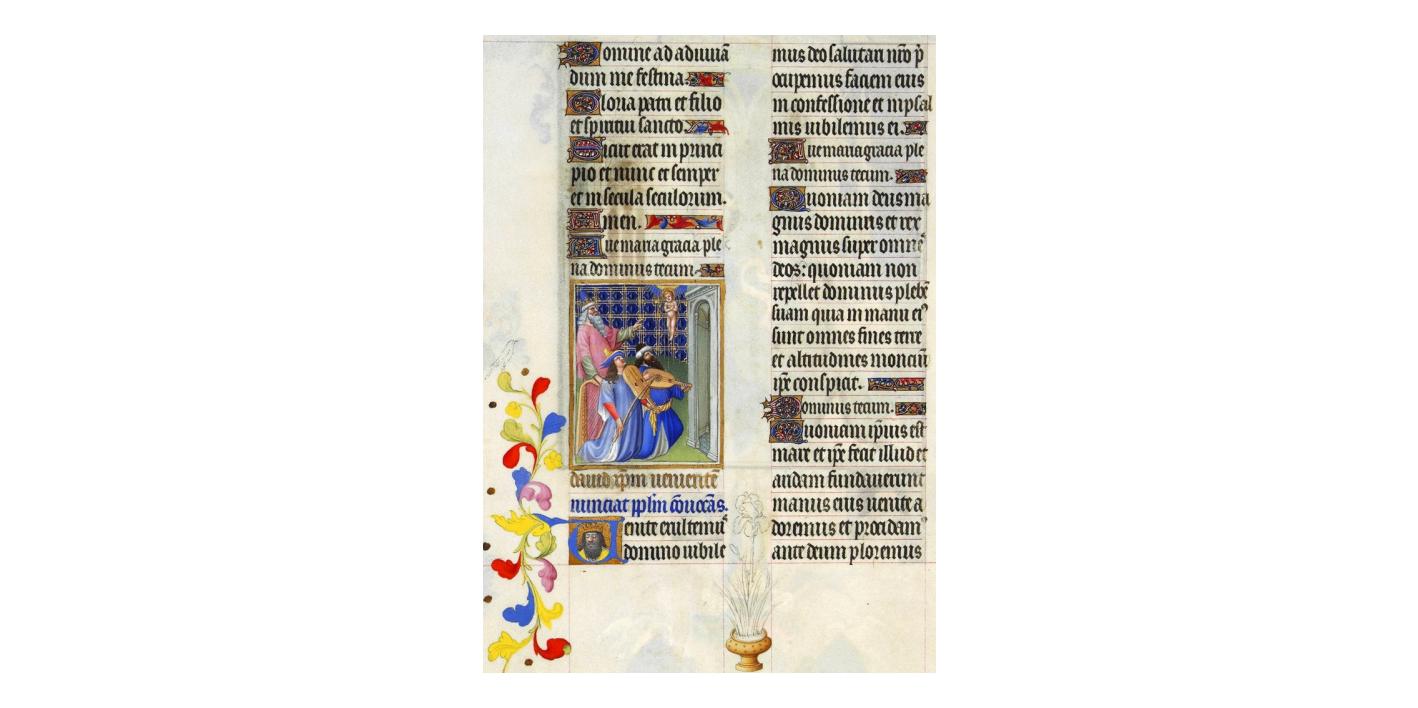 Domine ad adiuuā
dum me festina.
Gloria patri et filio
et spiritui sancto.
Sicut erat in princi
pio et nunc et semper
et in secula seculorum.
Amen.
Aue maria gracia ple
na dominus tecum.
dauid xp̄m uenientē
nunciat pplīn cōuocās.
Uenite exultemus
domino iubile
mus deo salutari nr̄o p̄
ocupemus faciem eius
in confessione et in psal
mis iubilemus ei.
Aue maria gracia ple
na dominus tecum.
Quoniam deus ma
gnus dominus et rex
magnus super omnes
deos: quoniam non
repellet dominus plebē
suam quia in manu eiꝰ
sunt omnes fines terre
et altitudines monciū
ip̄e conspicit.
Dominus tecum.
Quoniam ip̄ius est
mare et ip̄e fecit illud et
aridam fundauerunt
manus eius uenite a
doremus et procidamꝰ
ante deum ploremus